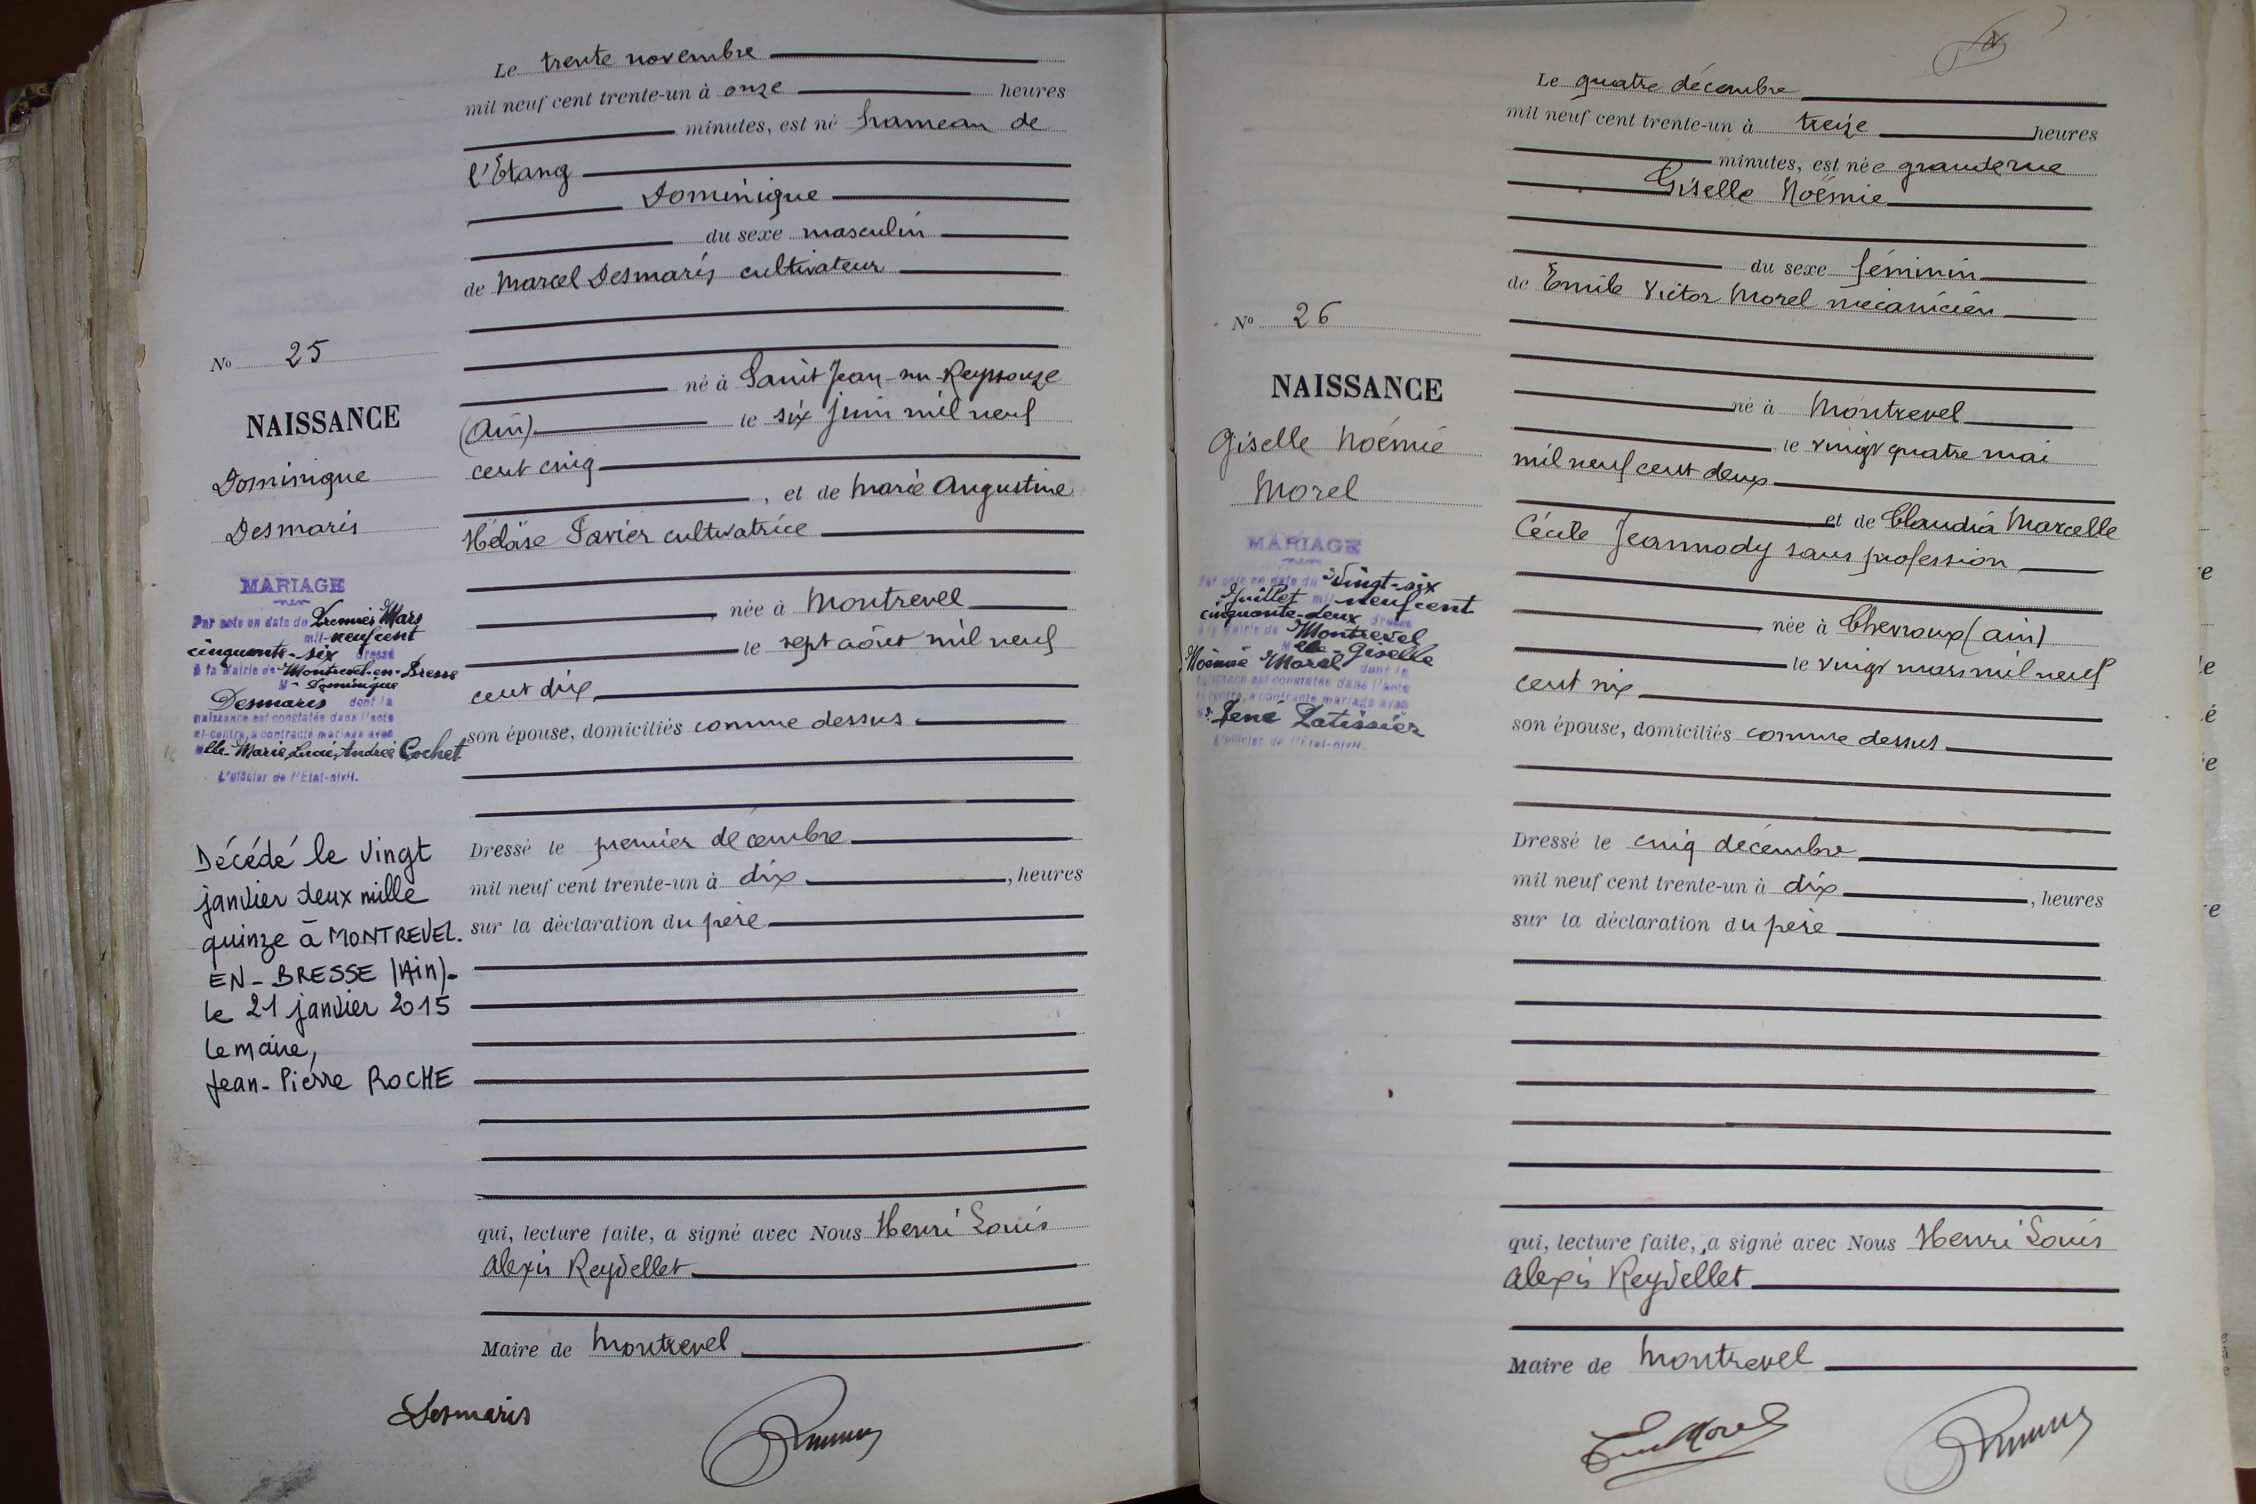 Le trente novembre
mil neuf cent trente-un à onze heures
minutes, est né hameau de
l'Étang
Dominique
du sexe masculin
de Marcel Desmaris cultivateur
né à Saint Jean-sur-Reyssouze
(Ain) le six juin mil neuf
cent cinq
, et de Marie Augustine
Héloïse Favier cultivatrice
, née à Montrevel
le sept août mil neuf
cent dix
son épouse, domiciliés comme dessus
Dressé le premier décembre
mil neuf cent trente-un à dix , heures
sur la déclaration du père
qui, lecture faite, a signé avec Nous Henri Louis
Alexis Reydellet
Maire de Montrevel
Desmaris
No 25
NAISSANCE
Dominique
Desmaris
MARIAGE
Par acte en date du Premier Mars
mil-neuf cent
cinquante-six dressé
à la Mairie de Montrevel-en-Bresse
Mr Dominique
Desmaris dont la
naissance est constatée dans l'acte
ci-contre, a contracté mariage avec
Melle Marie, Lucie, Andrée Cochet
L'officier de l'Etat-civil.
Décédé le vingt
janvier deux mille
quinze à MONTREVEL-
EN-BRESSE (Ain)-
le 21 janvier 2015
le maire,
Jean-Pierre ROCHE
Le quatre décembre
mil neuf cent trente-un à treize heures
minutes, est née grande rue
Giselle Noémie
du sexe féminin
de Emile Victor Morel mécanicien
né à Montrevel
le vingt quatre mai
mil neuf cent deux
et de Claudia Marcelle
Cécile Jeannody sans profession
, née à Chevroux (Ain)
le vingt mars mil neuf
cent six
son épouse, domiciliés comme dessus
Dressé le cinq décembre
mil neuf cent trente-un à dix , heures
sur la déclaration du père
qui, lecture faite, a signé avec Nous Henri Louis
Alexis Reydellet
Maire de Montrevel
No 26
NAISSANCE
Giselle Noémie
Morel
MARIAGE
Par acte en date du Vingt-six
Juillet mil neuf cent
cinquante-deux dressé
à la Mairie de Montrevel
Melle Giselle
Noémie Morel dont la
naissance est constatée dans l'acte
ci-contre, a contracté mariage avec
Mr René Patissier
L'officier de l'Etat-civil.